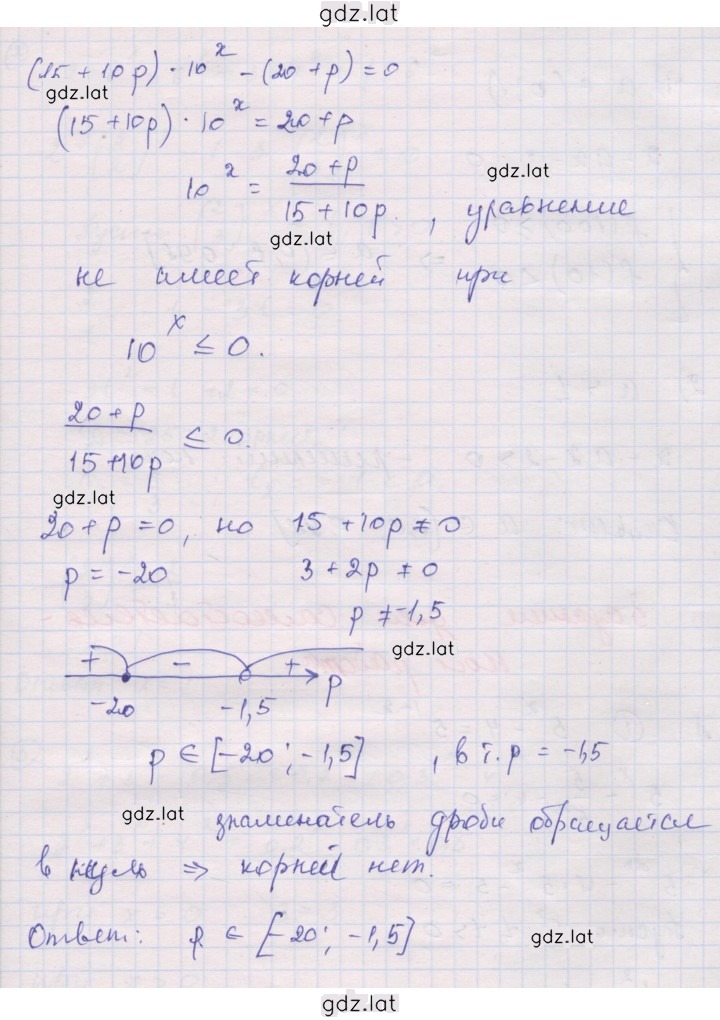 gdz.lat
(15 + 10p) · 10^x – (20 + p) = 0
gdz.lat
(15 + 10p) · 10^x = 20 + p
10^x = (20 + p)/(15 + 10p), уравнение
gdz.lat
gdz.lat
не имеет корней при
10^x ≤ 0.
(20 + p)/(15 + 10p) ≤ 0.
gdz.lat
20 + p = 0, но 15 + 10p ≠ 0
p = –20 3 + 2p ≠ 0
p ≠ –1,5
gdz.lat
+ – + p
–20 –1,5
p ∈ [–20; –1,5] , в т. p = –1,5
gdz.lat знаменатель дроби обращается
в нуль ⇒ корней нет.
Ответ: p ∈ [–20; –1,5]
gdz.lat
gdz.lat